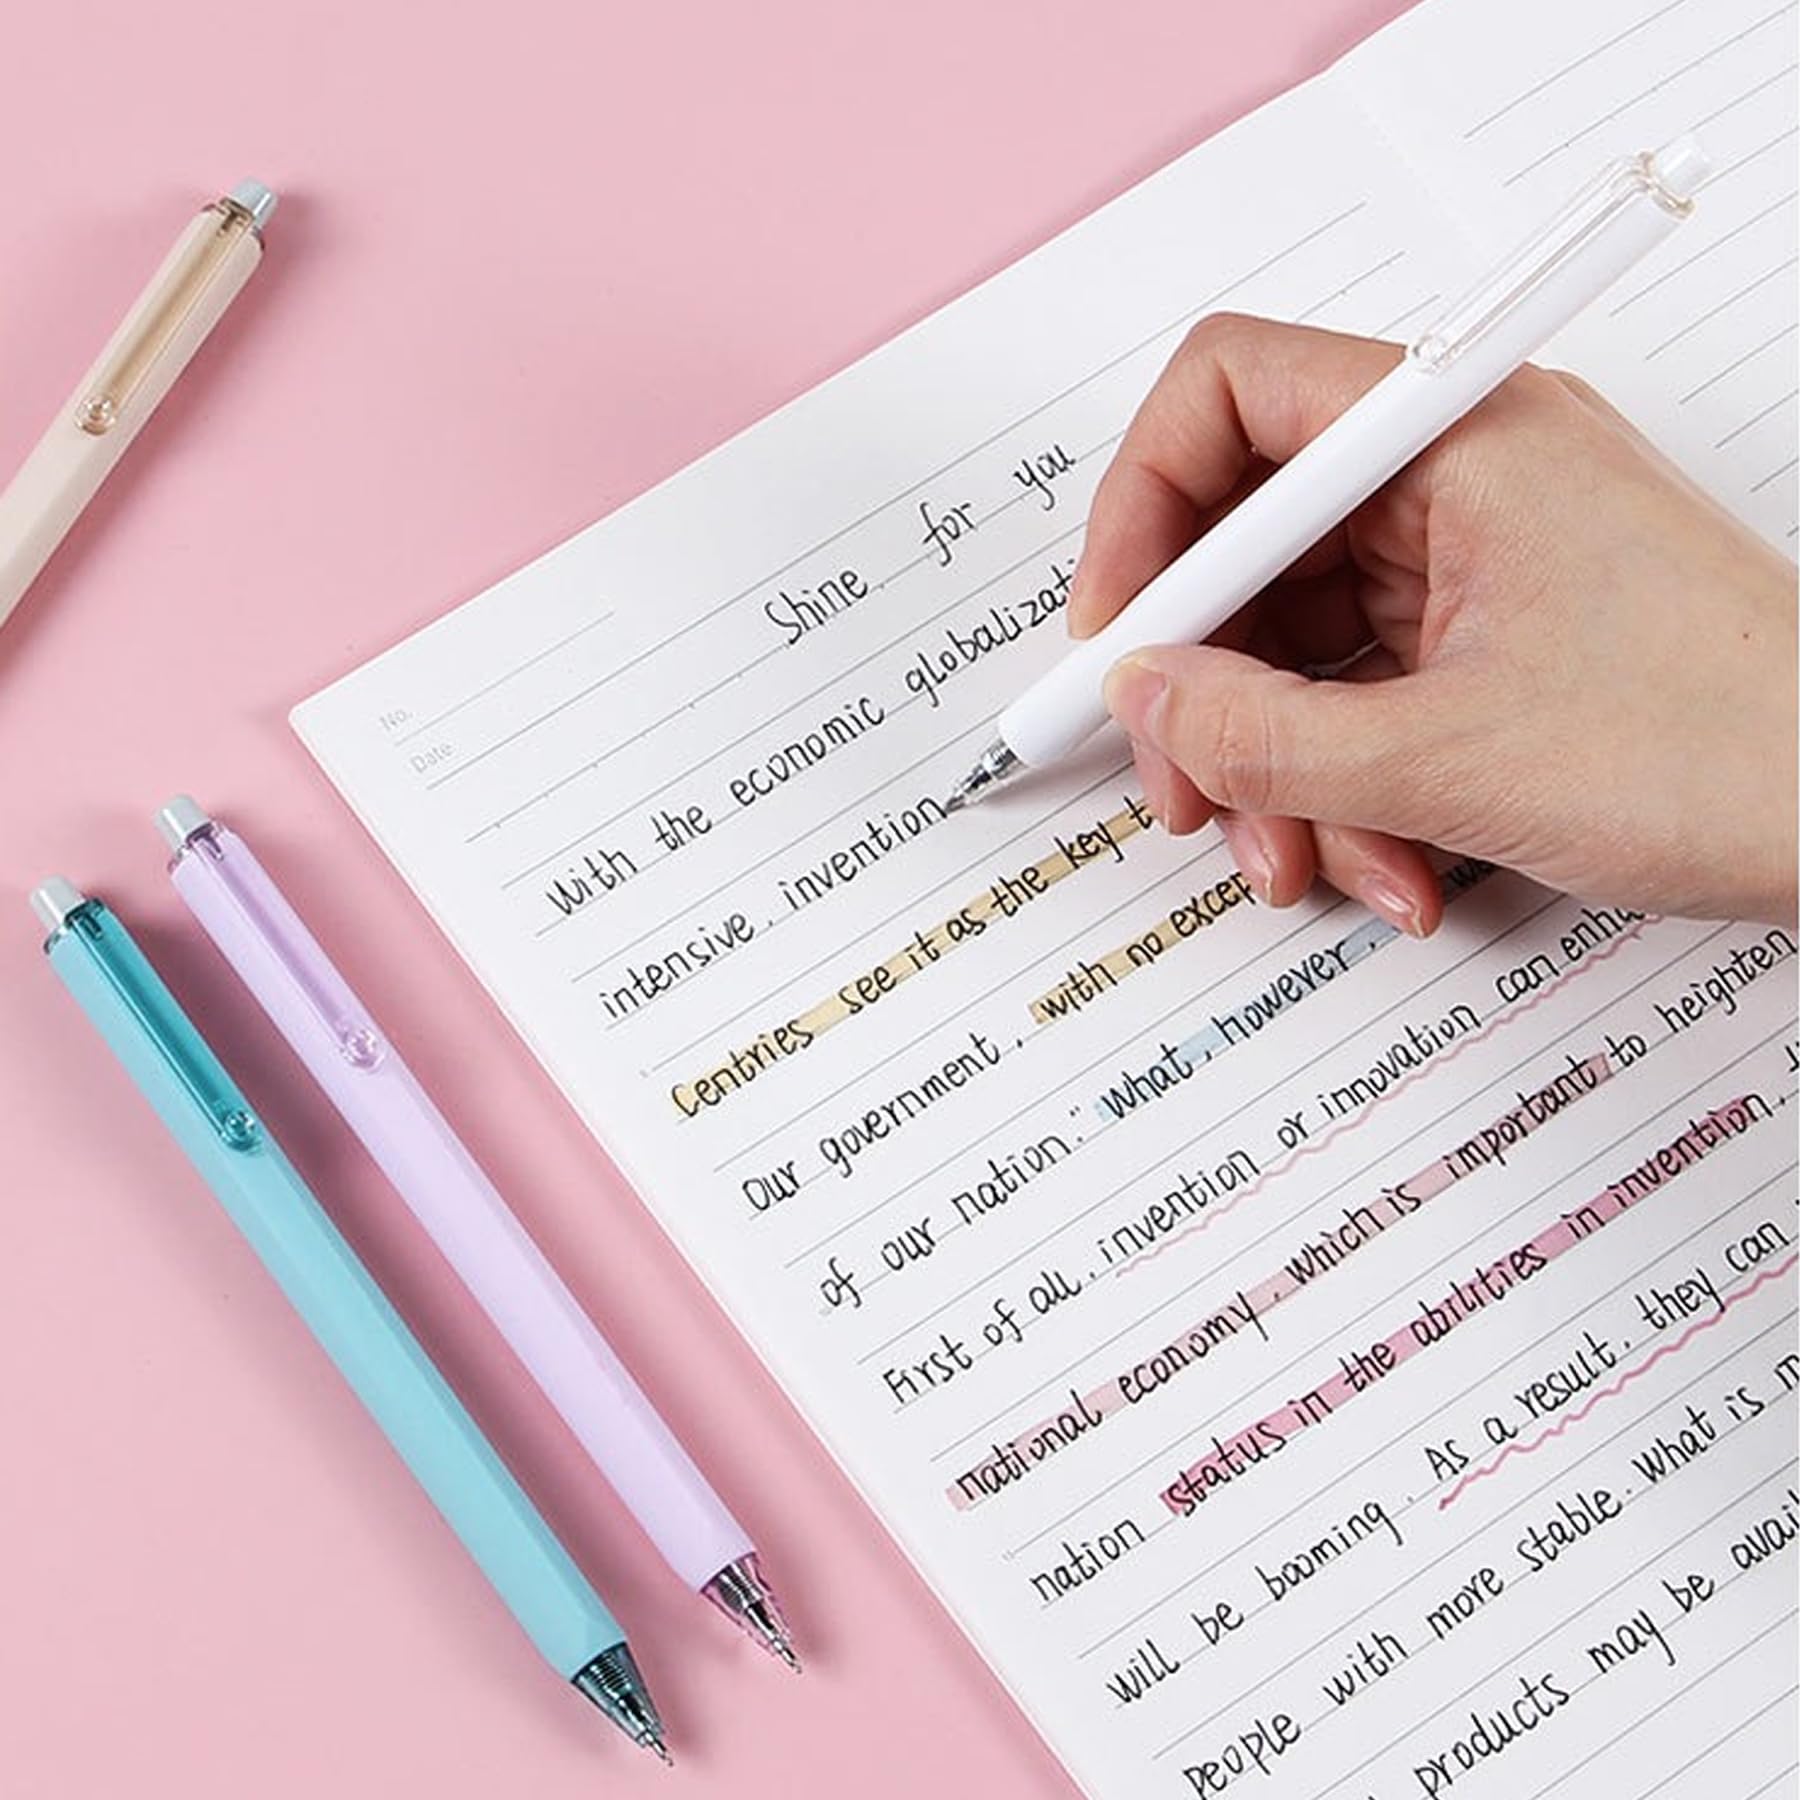 No.
Date
Shine for you
With the economic globalizati
intensive, invention
Centries see it as the key t
Our government, with no excep
of our nation." What, however,
First of all, invention or innovation can enha
national economy, which is important to heighten
nation status in the abilities in invention,
will be booming. As a result, they can
people with more stable. What is m
products may be avail